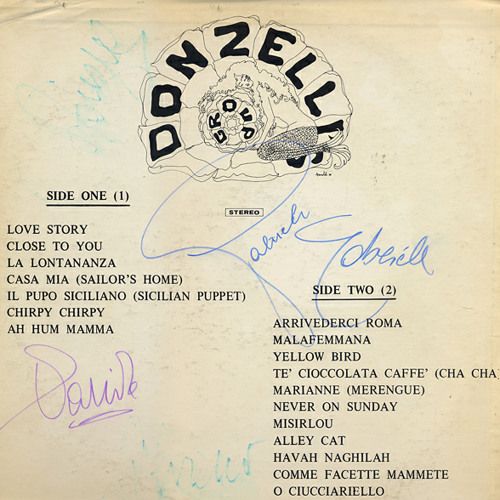 DONZELLI'S
GROUP
STEREO
SIDE ONE (1)
LOVE STORY
CLOSE TO YOU
LA LONTANANZA
CASA MIA (SAILOR'S HOME)
IL PUPO SICILIANO (SICILIAN PUPPET)
CHIRPY CHIRPY
AH HUM MAMMA
SIDE TWO (2)
ARRIVEDERCI ROMA
MALAFEMMANA
YELLOW BIRD
TE' CIOCCOLATA CAFFE' (CHA CHA)
MARIANNE (MERENGUE)
NEVER ON SUNDAY
MISIRLOU
ALLEY CAT
HAVAH NAGHILAH
COMME FACETTE MAMMETE
O CIUCCIARIELLO